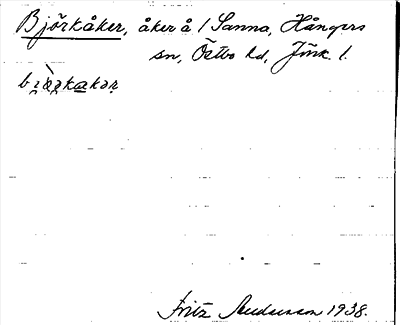 Björkåker, åker å 1 Sanna, Hångers
sn, Östbo hd, Jönk. l.
Fritz Andersson 1938.